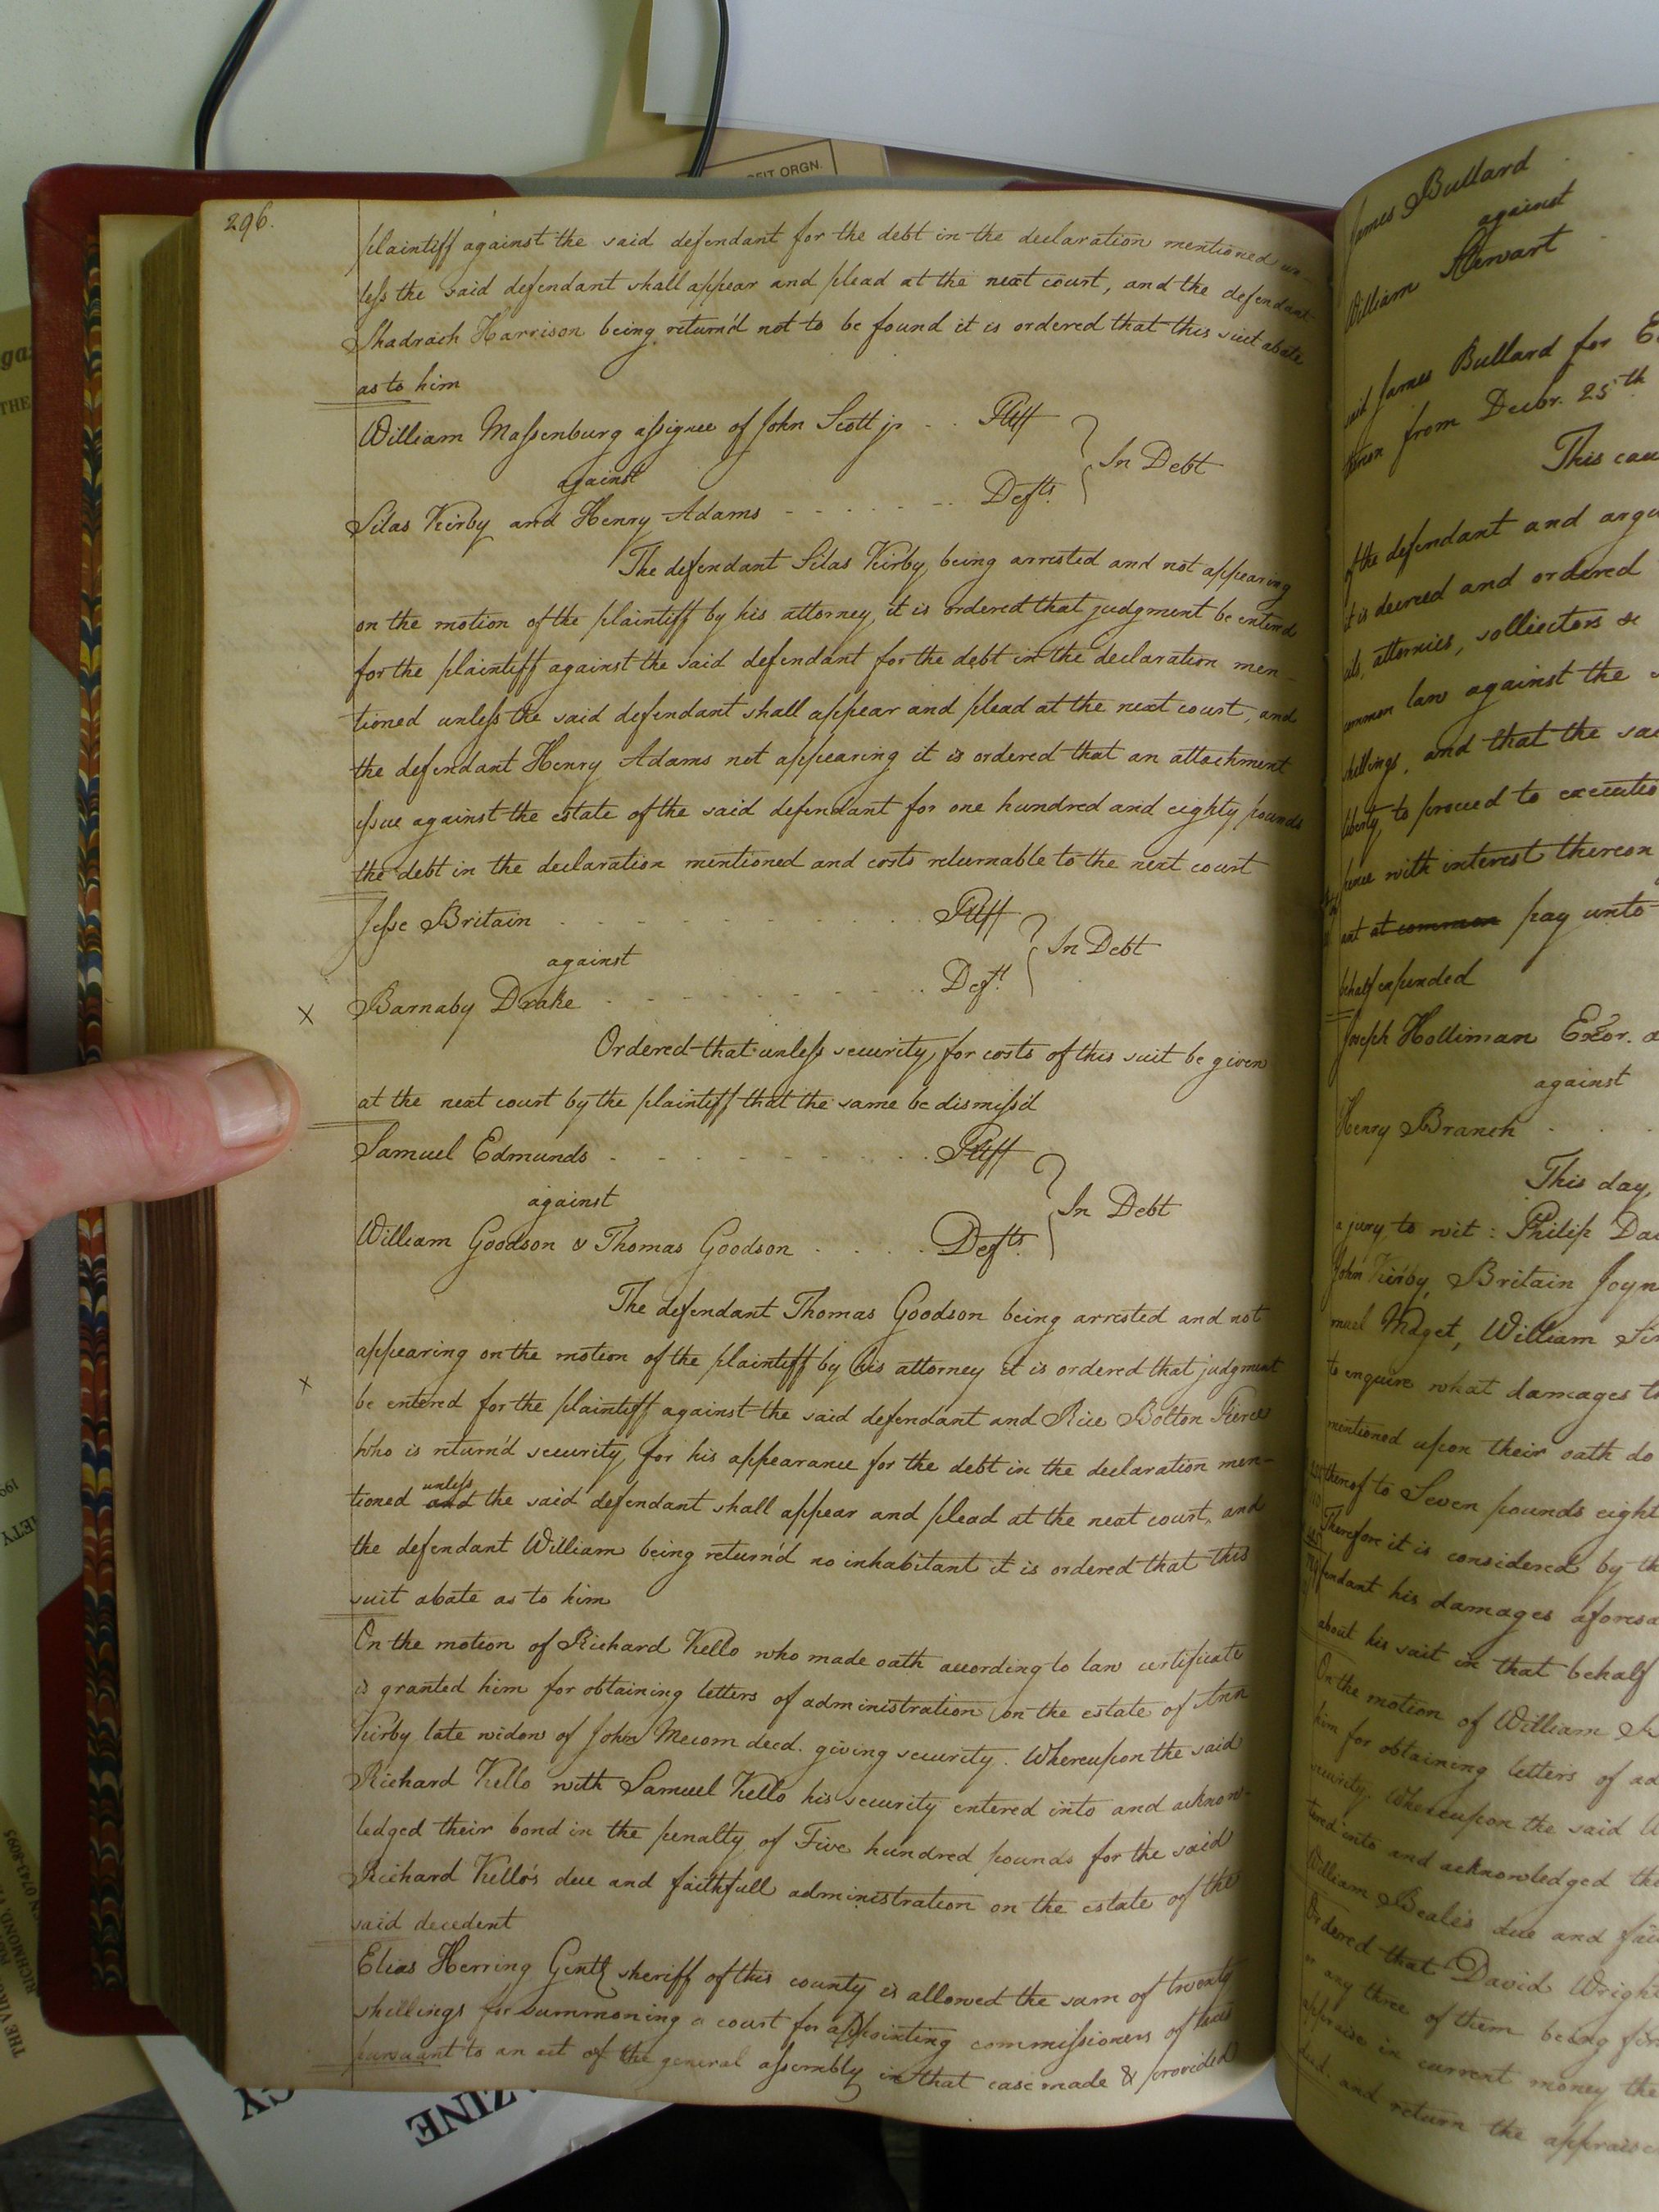 296.
plaintiff against the said defendant for the debt in the declaration mentioned un-
less the said defendant shall appear and plead at the next court, and the defendant
Shadrach Harrison being return'd not to be found it is ordered that this suit abate
as to him
William Massenburg assignee of John Scott jr . . Pltff
against
In Debt
Silas Kirby and Henry Adams - - - - - - Defts.
The defendant Silas Kirby being arrested and not appearing
on the motion of the plaintiff by his attorney, it is ordered that judgment be entered
for the plaintiff against the said defendant for the debt in the declaration men-
tioned unless the said defendant shall appear and plead at the next court, and
the defendant Henry Adams not appearing it is ordered that an attachment
issue against the estate of the said defendant for one hundred and eighty pounds
the debt in the declaration mentioned and costs returnable to the next court
Jesse Britain - - - - - - Pltff
against
In Debt
x Barnaby Drake - - - - - - Deft.
Ordered that unless security for costs of this suit be given
at the next court by the plaintiff that the same be dismiss'd
Samuel Edmunds - - - - - - Pltff
against
In Debt
William Goodson & Thomas Goodson . . . . Defts.
The defendant Thomas Goodson being arrested and not
appearing on the motion of the plaintiff by his attorney it is ordered that judgment
x
be entered for the plaintiff against the said defendant and Rice Bolton Pierce
who is return'd security for his appearance for the debt in the declaration men-
unless
tioned and the said defendant shall appear and plead at the next court, and
the defendant William being return'd no inhabitant it is ordered that this
suit abate as to him
On the motion of Richard Kello who made oath according to law certificate
is granted him for obtaining letters of administration on the estate of Ann
Kirby late widow of John Mecom decd. giving security. Whereupon the said
Richard Kello with Samuel Kello his security entered into and acknow-
ledged their bond in the penalty of Five hundred pounds for the said
Richard Kello's due and faithfull administration on the estate of the
said decedent
Elias Herring Gentl sheriff of this county is allowed the sum of twenty
shillings for summoning a court for appointing commissioners of
pursuant to an act of the general assembly in that case made & provided
James Bullard
against
William Stewart
said James Bullard for
from Decbr. 25th
This cau
of the defendant and argu
it is decreed and ordered
attornies, sollicitors &
common law against the
shillings, and that the sai
liberty to proceed to executio
pence with interest thereon
at common pay unto
behalf expended
Joseph Holliman Exor. a
against
Henry Branch . . .
This day,
a jury, to wit : Philip Dav
John Kirby, Britain Joyn
muel Midget, William Sim
to enquire what damages th
mentioned upon their oath do
thereof to Seven pounds eight
Therefore it is considered by th
fendant his damages aforesa
about his suit in that behalf
On the motion of William
him for obtaining letters of ad
security. Whereupon the said W
tered into and acknowledged the
William Beale's due and fai
Ordered that David Wright
or any three of them being firs
appraise in current money the
decd. and return the appraise
FIT ORGN.
ZINE